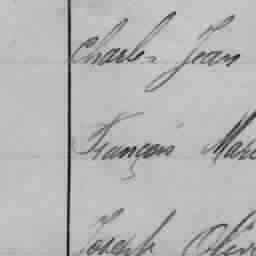 Charles Jean
François Marc
Joseph Oliv